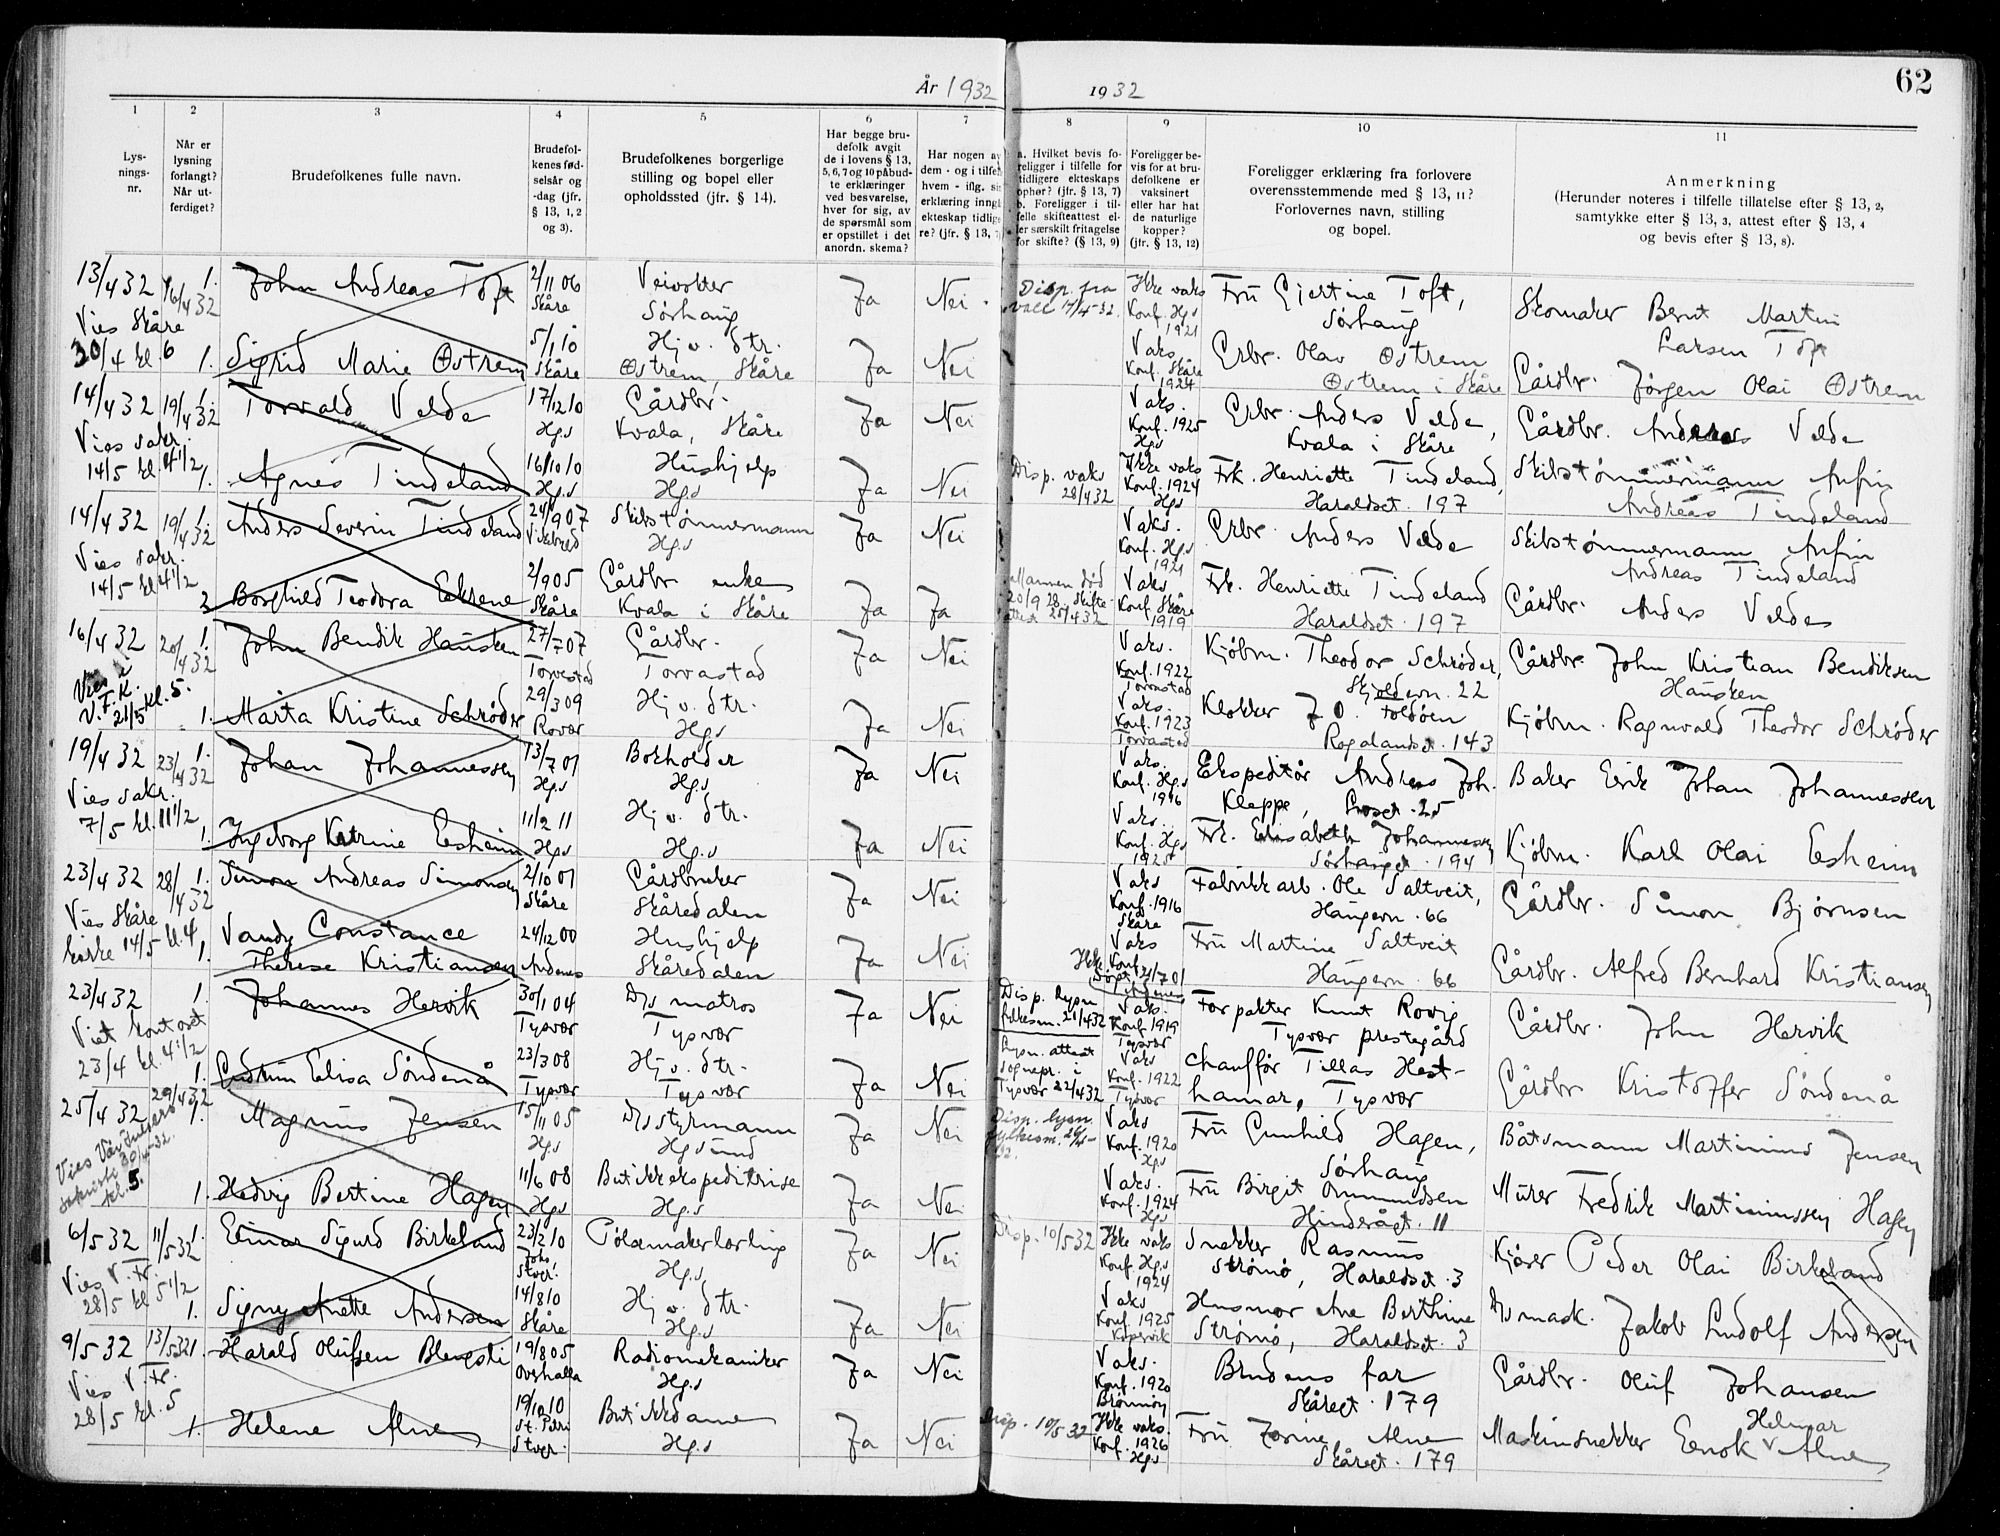 62
År 1932
1932
1
2
3
4
5
6
7
8
9
10
11
Lys-
nings-
nr.
Når er
lysning
forlangt?
Når ut-
ferdiget?
Brudefolkenes fulle navn.
Brudefol-
kenes fød-
selsår og
-dag (jfr.
§ 13, 1, 2
og 3).
Brudefolkenes borgerlige
stilling og bopel eller
opholdssted (jfr. § 14).
Har begge bru-
defolk avgit
de i lovens § 13,
5, 6, 7 og 10 påbud-
te erklæringer
ved besvarelse,
hver for sig, av
de spørsmål som
er opstillet i det
anordn. skema?
Har nogen av
dem - og i tilfelle
hvem - iflg. sin
erklæring inngått
ekteskap tidlige-
re? (jfr. § 13, 7)
a. Hvilket bevis fo-
religger i tilfelle for
tidligere ekteskaps
ophør? (jfr. § 13, 7)
b. Foreligger i til-
felle skifteattest el-
ler særskilt fritagelse
for skifte? (§ 13, 9)
Foreligger be-
vis for at bru-
defolkene er
vaksinert
eller har hat
de naturlige
kopper?
(jfr. § 13, 12)
Foreligger erklæring fra forlovere
overensstemmende med § 13, 11?
Forlovernes navn, stilling
og bopel.
Anmerkning
(Herunder noteres i tilfelle tillatelse efter § 13, 2,
samtykke efter § 13, 3, attest efter § 13, 4
og bevis efter § 13, 8).
13/4 32 16/4 32 1. John Andreas Toft 2/11 06 Skåre Veivokter Sørhaug Ja Nei. Disp. fra vaks 17/4-32 Ikke vaks Konf. Hgs 1921 Fru Gjertine Toft, Sørhaug Skomaker Bernt Martin Larsen Toft
Vies Skåre 30/4 kl. 6
1. Sigrid Marie Østrem 5/1 10 Skåre Hj. v. str. Østrem, Skåre Ja Nei Vaks Konf. Skåre 1924 Grbr. Olav Østrem Østrem i Skåre Gårdbr. Jørgen Olai Østrem
14/4 32 19/4 32 1. Torvald Velde 17/12 10 Hgs Gårdbr. Kvala, Skåre Ja Nei Vaks. Konf. 1925 Hgs Grbr. Anders Velde, Kvala i Skåre Gårdbr. Anders Velde
Vies sakr. 14/5 kl. 4 1/2
1. Agnes Tindeland 16/10 10 Hgs Hushjelp Hgs Ja Nei Disp. vaks 28/4 32 Ikke vaks Konf. 1924 Hgs Frk. Henriette Tindeland, Haraldsgt. 197 Skibstømmermann Anfin Andreas Tindeland
14/4 32 19/4 32 1. Anders Severin Tindeland 24/9 07 Skibstømmermann Hgs Ja Nei Vaks. Konf. Hgs 1921 Grbr. Anders Velde Skibstømmermann Anfin Andreas Tindeland
Vies sakr. 14/5 kl 4 1/2
2 Borghild Teodora Eekrene 2/9 05 Skåre Gårdbr enke Kvala i Skåre Ja Ja Mannen død 20/9 28. Skifteattest 25/4 32 Vaks Konf. Skåre 1919 Frk. Henriette Tindeland Haraldsgt. 197 Gårdbr. Anders Velde
16/4 32 20/4 32 1. John Bendik Hausken 27/7 07 Torvastad Gårdbr. Torvastad Ja Nei Vaks. Konf. 1922 Torvastad Kjøbm. Theodor Schrøder, Skjoldavn. 22 Gårdbr. John Kristian Bendiksen Hausken
Vies i V.F.K. 21/5 kl. 5.
1. Marta Kristine Schrøder 29/3 09 Rovær Hj v. str. Hgs Ja Nei Vaks. Konf. 1923 Torvastad Klokker J O. Toldøen Rogalandsgt. 143 Kjøbm. Ragnvald Theodor Schrøder
19/4 32 23/4 32 1. Johan Johannessen 13/7 01 Hgs Bokholder Hgs Ja Nei Vaks. Konf. Hgs 1916 Ekspeditør Andreas Joh. Kleppe, 25 Baker Erik Johan Johannessen
Vies sakr. 7/5 kl. 11 1/2
1. Ingeborg Katrine Eesheim 11/2 11 Hgs Hj v. str. Hgs Ja Nei Vaks. Konf. Hgs 1925 Frk. Elisabeth Johannessen Sørhauggt. 194 Kjøbm. Karl Olai Eesheim
23/4 32 28/4 32 1. Simon Andreas Simonsen 2/10 01 Skåre Gårdbruker Skåredalen Ja Nei Vaks Konf. 1916 Skåre Fabrikkarb. Ole Saltveit, Haugevn. 66 Gårdbr. Simon Bjørnsen
Vies Skåre kirke 14/5 kl. 4
1. Vandy Constance Therese Kristiansen 24/12 00 Andenes Hushjelp Skåredalen Ja Nei Vaks Ikke Konf. Døpt 21/7 01 Andenes Fru Martine Saltveit Haugevn. 66 Gårdbr. Alfred Bernhard Kristiansen
23/4 32 1. Johannes Hervik 30/1 04 Tysvær D/s matros Tysvær Ja Nei Disp. lysn. fylkesm. 21/4 32 Vaks. Konf. 1919 Tysvær Forpakter Knut Rovig Tysvær prestegård Gårdbr. John Hervik
Viet kontoret 23/4 kl. 4 1/2
1. Gudrun Elisa Søndenå 23/3 08 Tysvær Hj. v. str. Tysvær Ja Nei Lysn. attest sognepr. i Tysvær 22/4 32 Vaks Konf. 1922 Tysvær Chauffør Tillas Hesthamar, Tysvær Gårdbr Kristoffer Søndenå
25/4 32 29/4 32 1. Magnus Jensen 15/11 05 Hgs D/s styrmann Hgsund Ja Nei Disp. lysn. fylkesm. Vaks Konf. 1920 Hgs Fru Gunhild Hagen, Sørhaug Båtsmann Martinius Jensen
Vies Vår Frelsers sakristi 30/4-32. kl. 5.
1. Hedvig Bertine Hagen 11/6 08 Hgs Butikkekspeditrise Hgs Ja Nei Vaks. Konf. 1924 Hgs Fru Birgit Ommundsen Hinderågt. 11 Murer Fredrik Martinussen Hagen
6/5 32 11/5 32 1. Einar Sigurd Birkeland 23/2 10 Joh. Stvgr. Pølsemakerlærling Hgs Ja Nei Disp. 10/5 32 Ikke vaks Konf. Hgs 1924 Snekker Rasmus Strømø, Haraldsgt. 3 Kjører Peder Olai Birkeland
Vies V. Fr. 28/5 kl 5 1/2
1. Signy Anette Andersen 14/8 10 Skåre Hj v. str. Hgs Ja Nei Vaks Konf. 1925 Kopervik Husmor Ane Berthine Strømø, Haraldsgt. 3 D/s mask. Jakob Ludolf Andersen
9/5 32 13/5 32 1. Harald Olufsen 19/8 05 Overhalla Radiomekaniker Hgs Ja Nei Vaks. Konf. 1920 Brønnøy Brudens far Skåregt. 179 Gårdbr. Oluf Johansen
Vies V. Fr. 28/5 kl. 5
1. Helene Alne 19/10 10 St. Petri Stvgr. Butikkdame Hgs Ja Nei Disp. 10/5 32 Ikke vaks. Konf. 1926 Hgs Fru Alne Skåregt. 179 Maskinsnekker Enok Helmar Alne